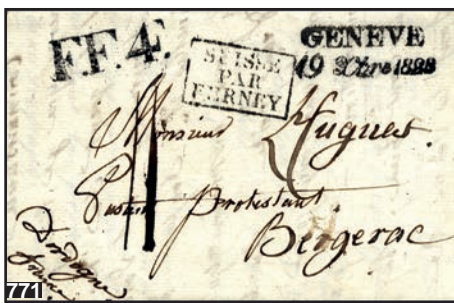 F.F.4.
SUISSE
PAR
FERNEY
GENEVE
19 Xbre 1828
Monsieur Hugues
Pasteur protestant.
Bergerac
Dordogne
france
771